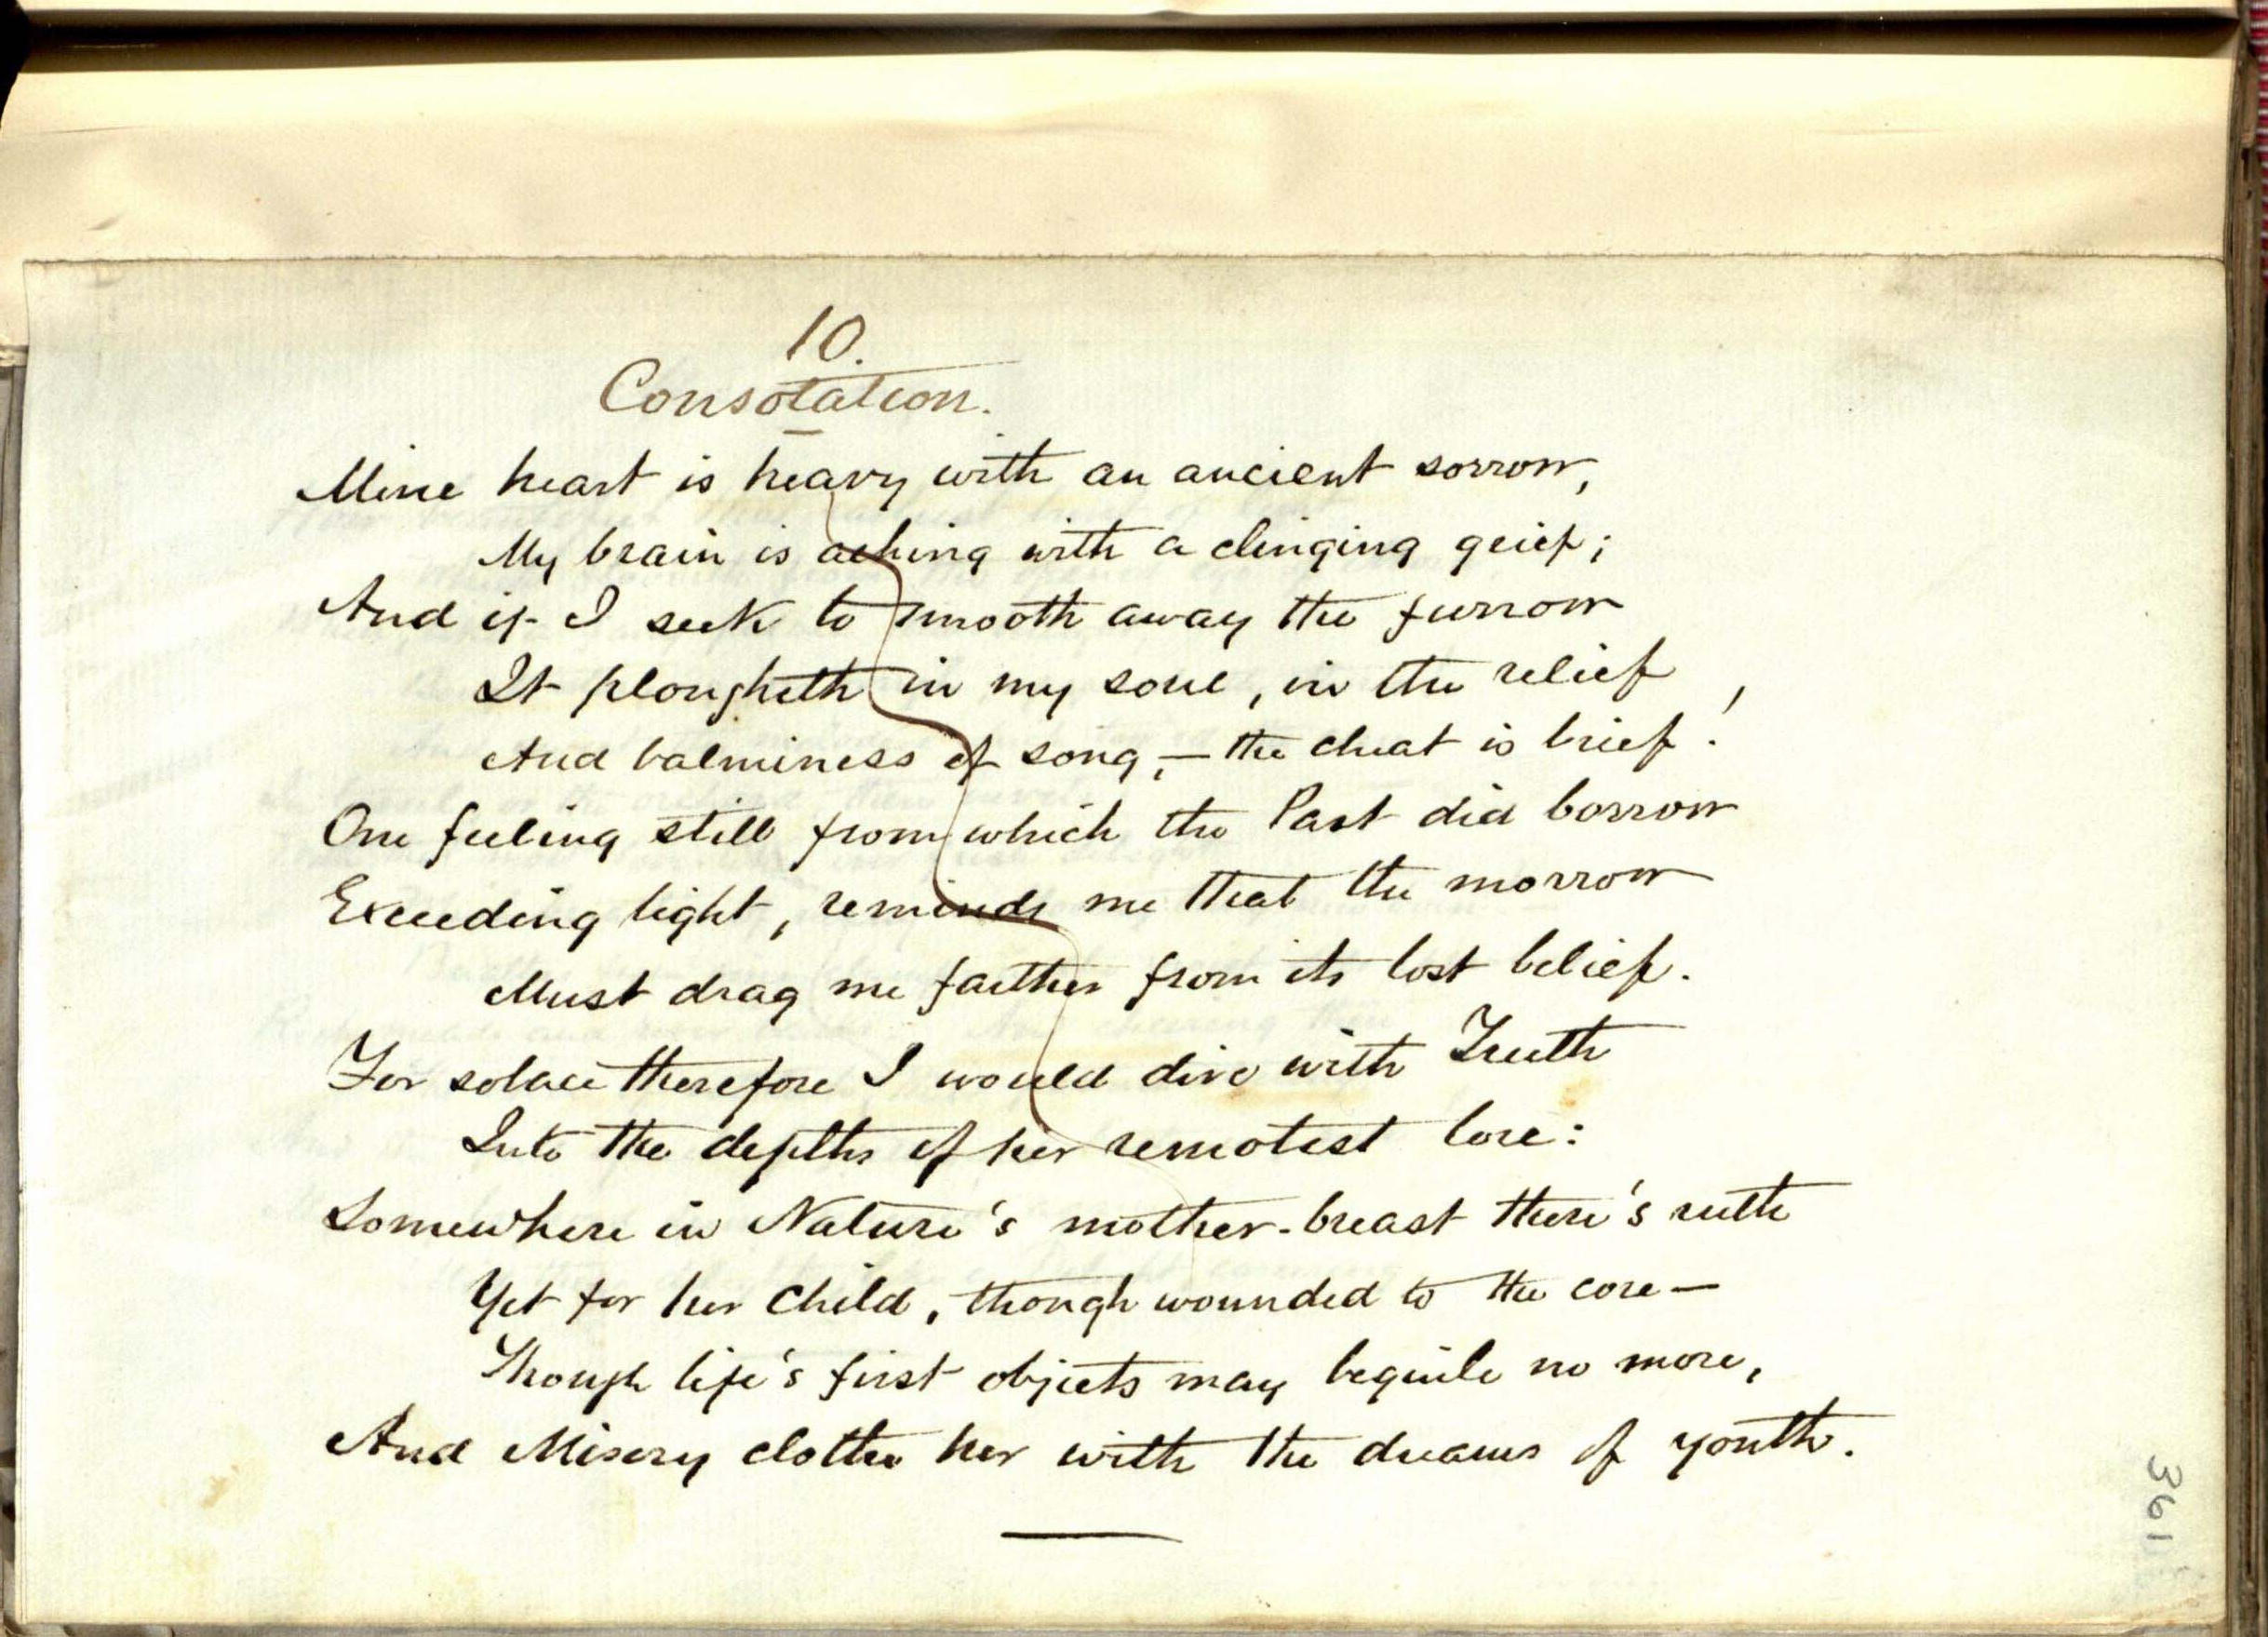 10.
Consolation.
Mine heart is heavy with an ancient sorrow,
My brain is aching with a clinging grief;
And if I seek to smooth away the furrow
It plougheth in my soul, in the relief
And balminess of song,— the cheat is brief!
One feeling still from which the Past did borrow
Exceeding light, reminds me that the morrow
Must drag me farther from its lost belief.
For solace therefore I would dive with Truth
Into the depths of her remotest lore:
Somewhere in Nature's mother-breast there's ruth
Yet for her child, though wounded to the core—
Though life's first objects may beguile no more,
And Misery clothe her with the dreams of youth.
361